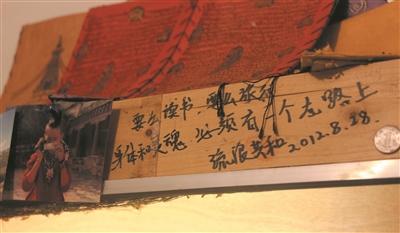 要么读书，要么旅行
身体和灵魂 必须有一个在路上
流浪共和 2012.8.28.